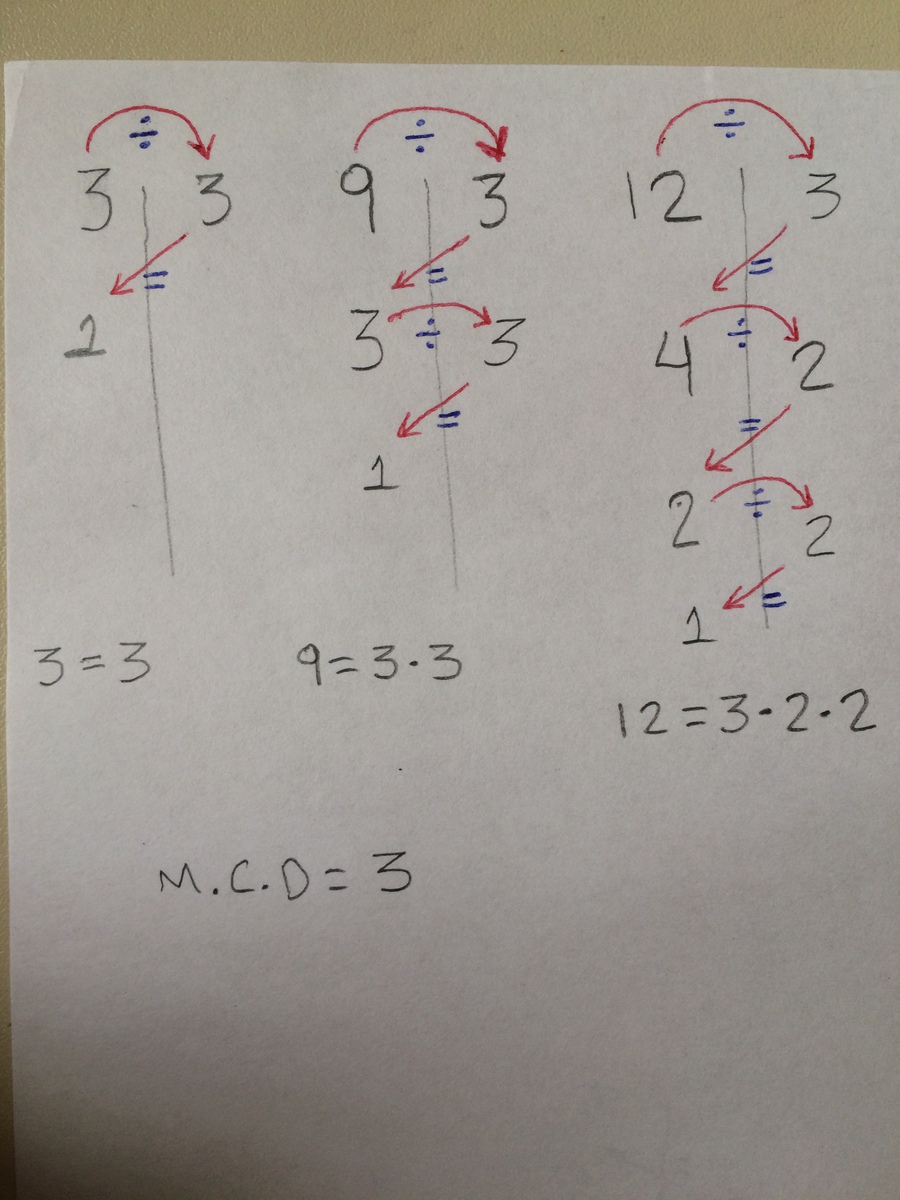 ÷ ÷ ÷
3 3 9 3 12 3
= = =
1 3 ÷ 3 4 ÷ 2
= =
1 2 ÷ 2
=
1
3=3 9=3·3
12=3·2·2
M.C.D=3